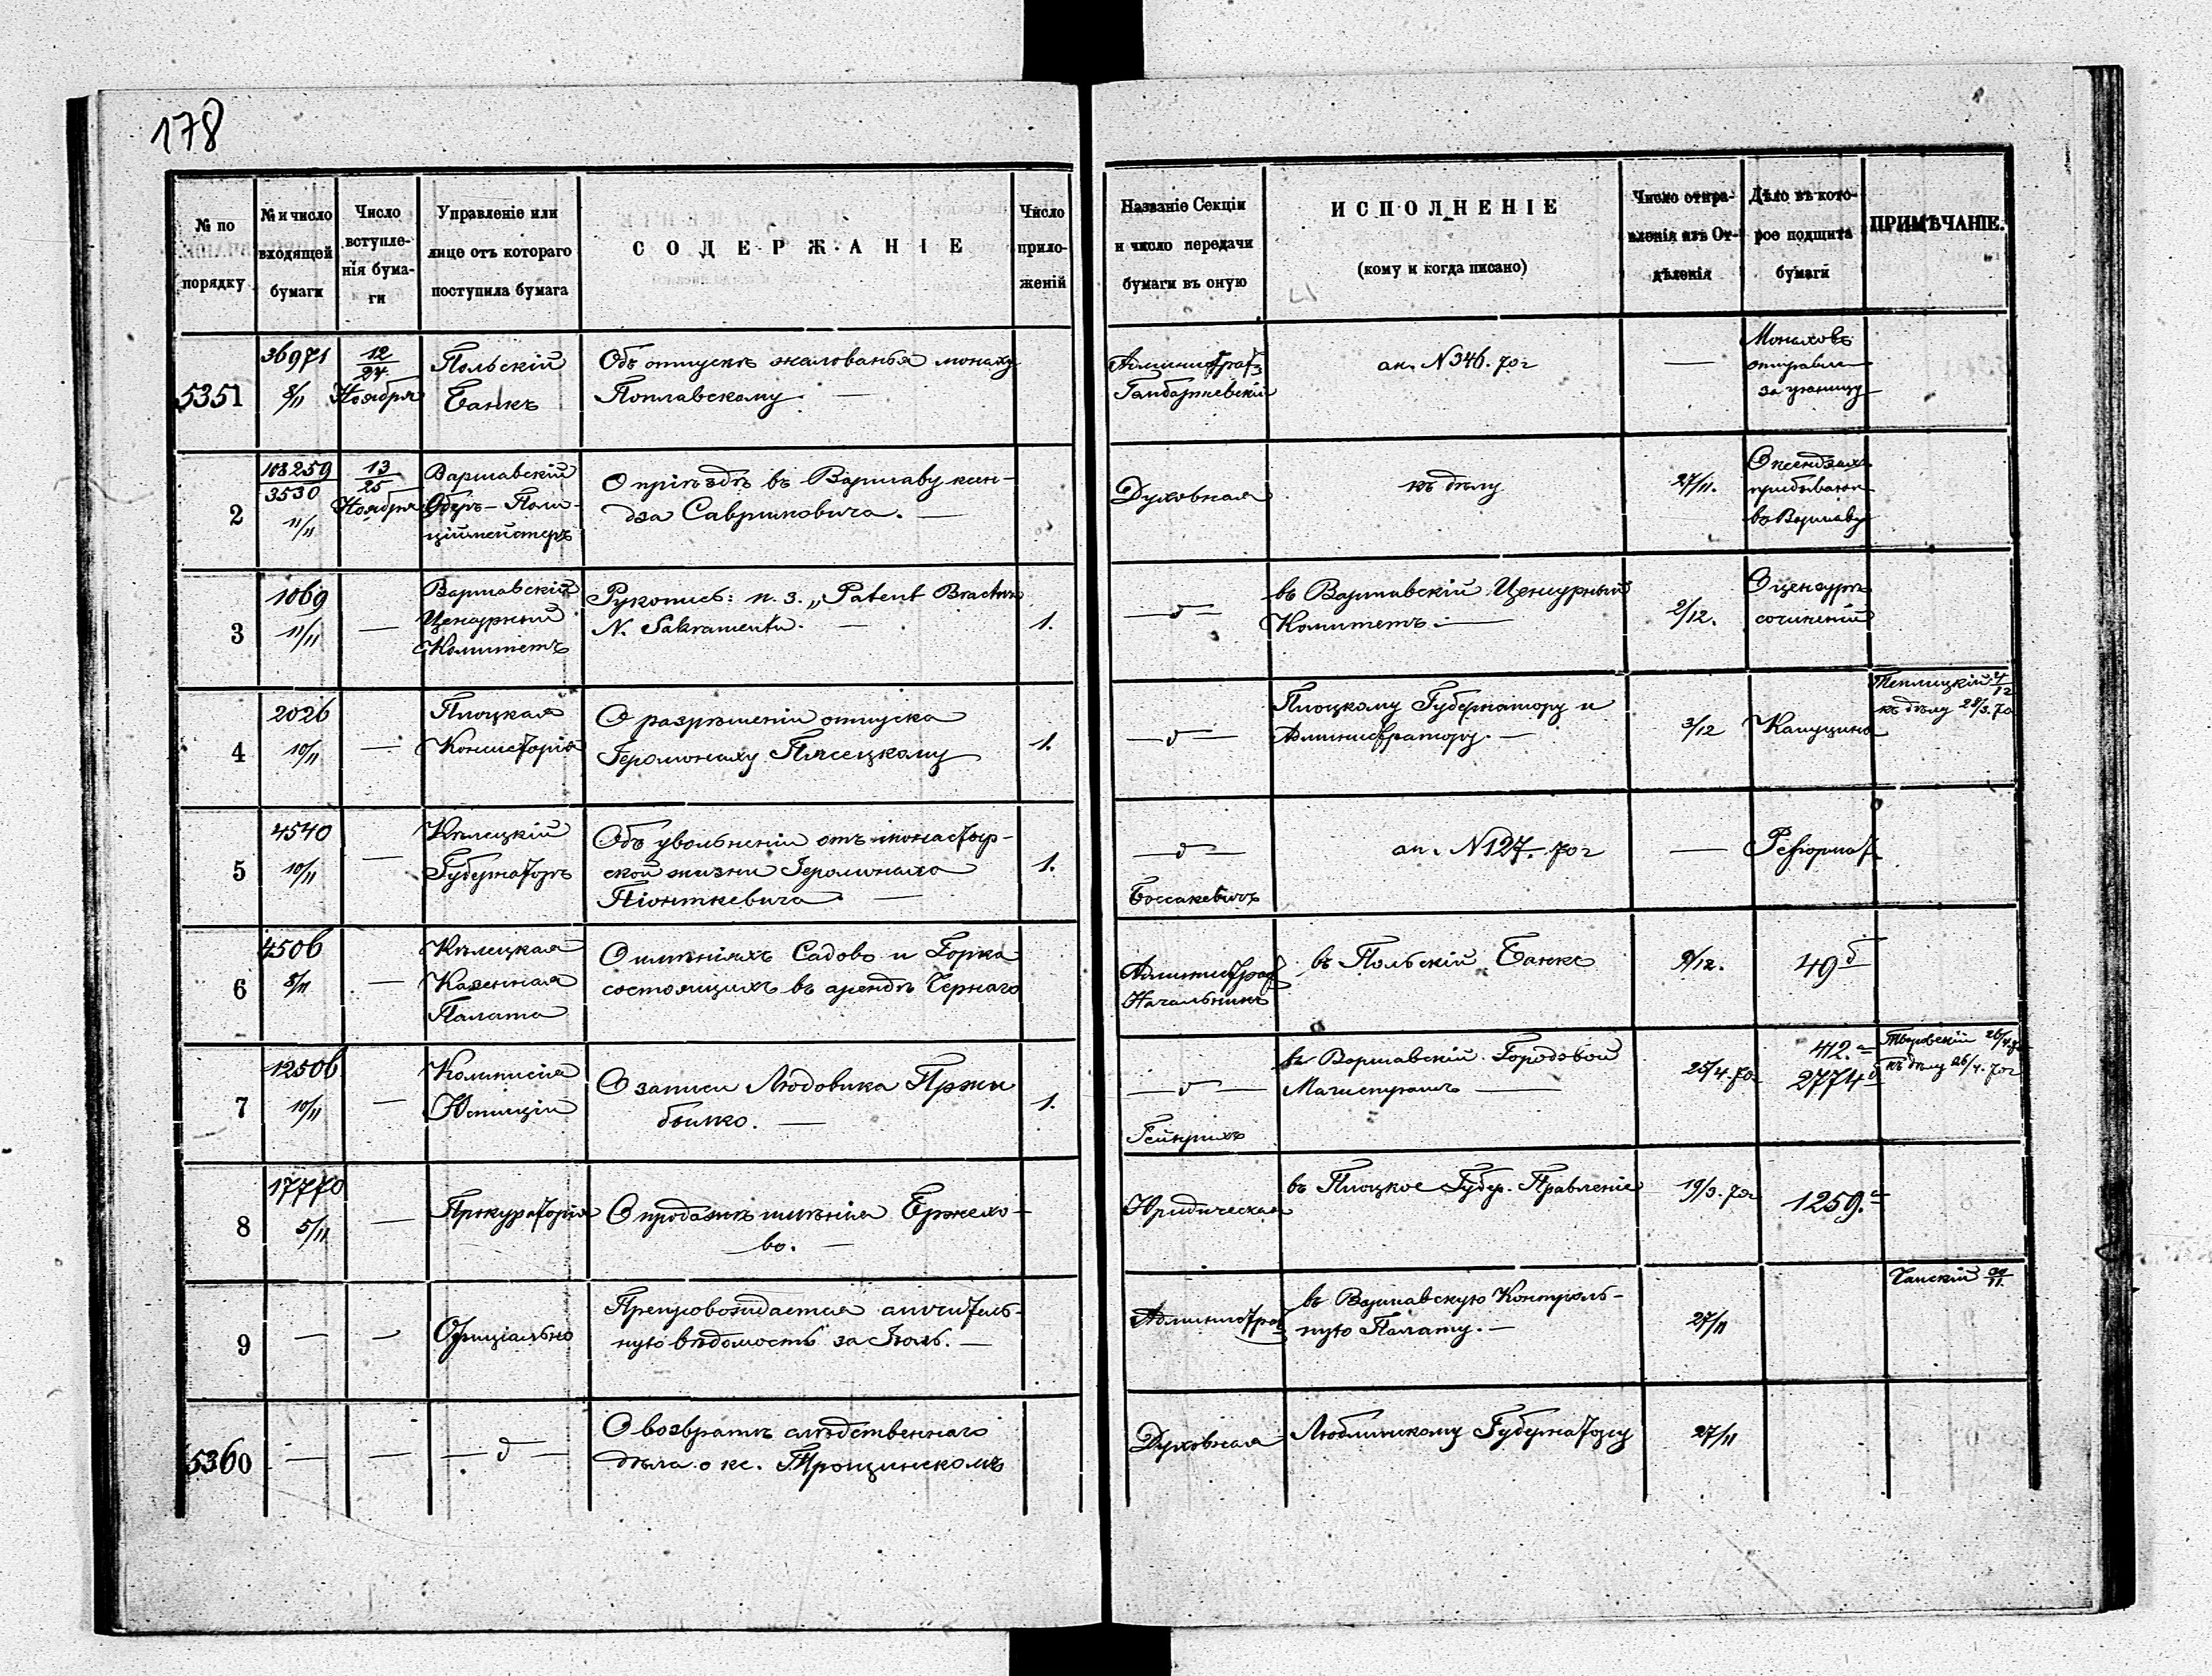 178
№ по порядку
№ и число входящей бумаги
Число вступле-
нія бума-
ги
Управленіе или
лице отъ котораго
поступила бумага
СОДЕРЖАНІЕ
Число
прило-
женій
Названіе Секціи
и число передачи
бумаги въ оную
ИСПОЛНЕНІЕ
(кому и когда писано)
Число отпра-
вленія изъ От-
дѣленія
Дѣло въ кото-
рое подшита
бумаги
ПРИМѢЧАНІЕ.
5351
36971
8/11
12/24
Ноября
Польскій
Банкъ
Объ отпускѣ жалованья монаху
Поплавскому. —
—
Монаховъ
отправл
за границу
2
103259
3530
11/11
13/25
Ноября
Варшавскій
Оберъ-Поли-
ціймейстеръ
О пріѣздѣ въ Варшаву ксен-
дза Савримовича. —
Духовная
къ дѣлу
27/11.
О ксендзахъ
прибывающ
въ Варшаву
3
1069
11/11
—
Варшавскій
Цензурный
Комитетъ
Рукопись: п. з. „Patent Bractwa
N. Sakramentu. —
1.
— д —
въ Варшавскій Цензурный
Комитетъ. —
2/12.
О цензурѣ
сочиненій
4
2026
10/11
—
Плоцкая
Консисторія
О разрѣшеніи отпуска
Іеромонаху Пясецкому
1.
— д —
Плоцкому Губернатору и
Администратору. —
3/12
къ дѣлу
5
4540
10/11
—
Кѣлецкій
Губернаторъ
Объ увольненіи отъ монастыр-
ской жизни Іеромонаха
Піонткевича —
1.
— д —
Боссакевичъ
ан. N 127. 70 г
—
Реформат
6
4506
8/11
—
Кѣлецкая
Казенная
Палата
О имѣніяхъ Садово и Горка
состоящихъ въ арендѣ Чернаго
Администрат
Начальникъ
въ Польскій Банкъ
9/12.
49 б
7
12506
10/11
—
Коммисія
Юстиціи
О записи Людовика Пржи
былко. —
1.
— д —
Гейнрихъ
въ Варшавскій Городовой
Магистратъ —
25/4. 70
412.
2774
къ дѣлу 26/4. 70 г
8
17770
5/11
—
Прокураторія
О продажѣ имѣнія Бржехо-
во. —
Юридическая
въ Плоцкое Губер. Правленіе
19/3. 70 г
1259. а
9
—
—
Офиціально
Препровождается
ную вѣдомость за Іюль. —
Администрат
въ Варшавскую Контроль-
ную Палату. —
27/11
5360
—
—
— д —
О возвратѣ слѣдственнаго
дѣла о кс. Трощинскомъ
Духовная
Люблинскому Губернатору
27/11